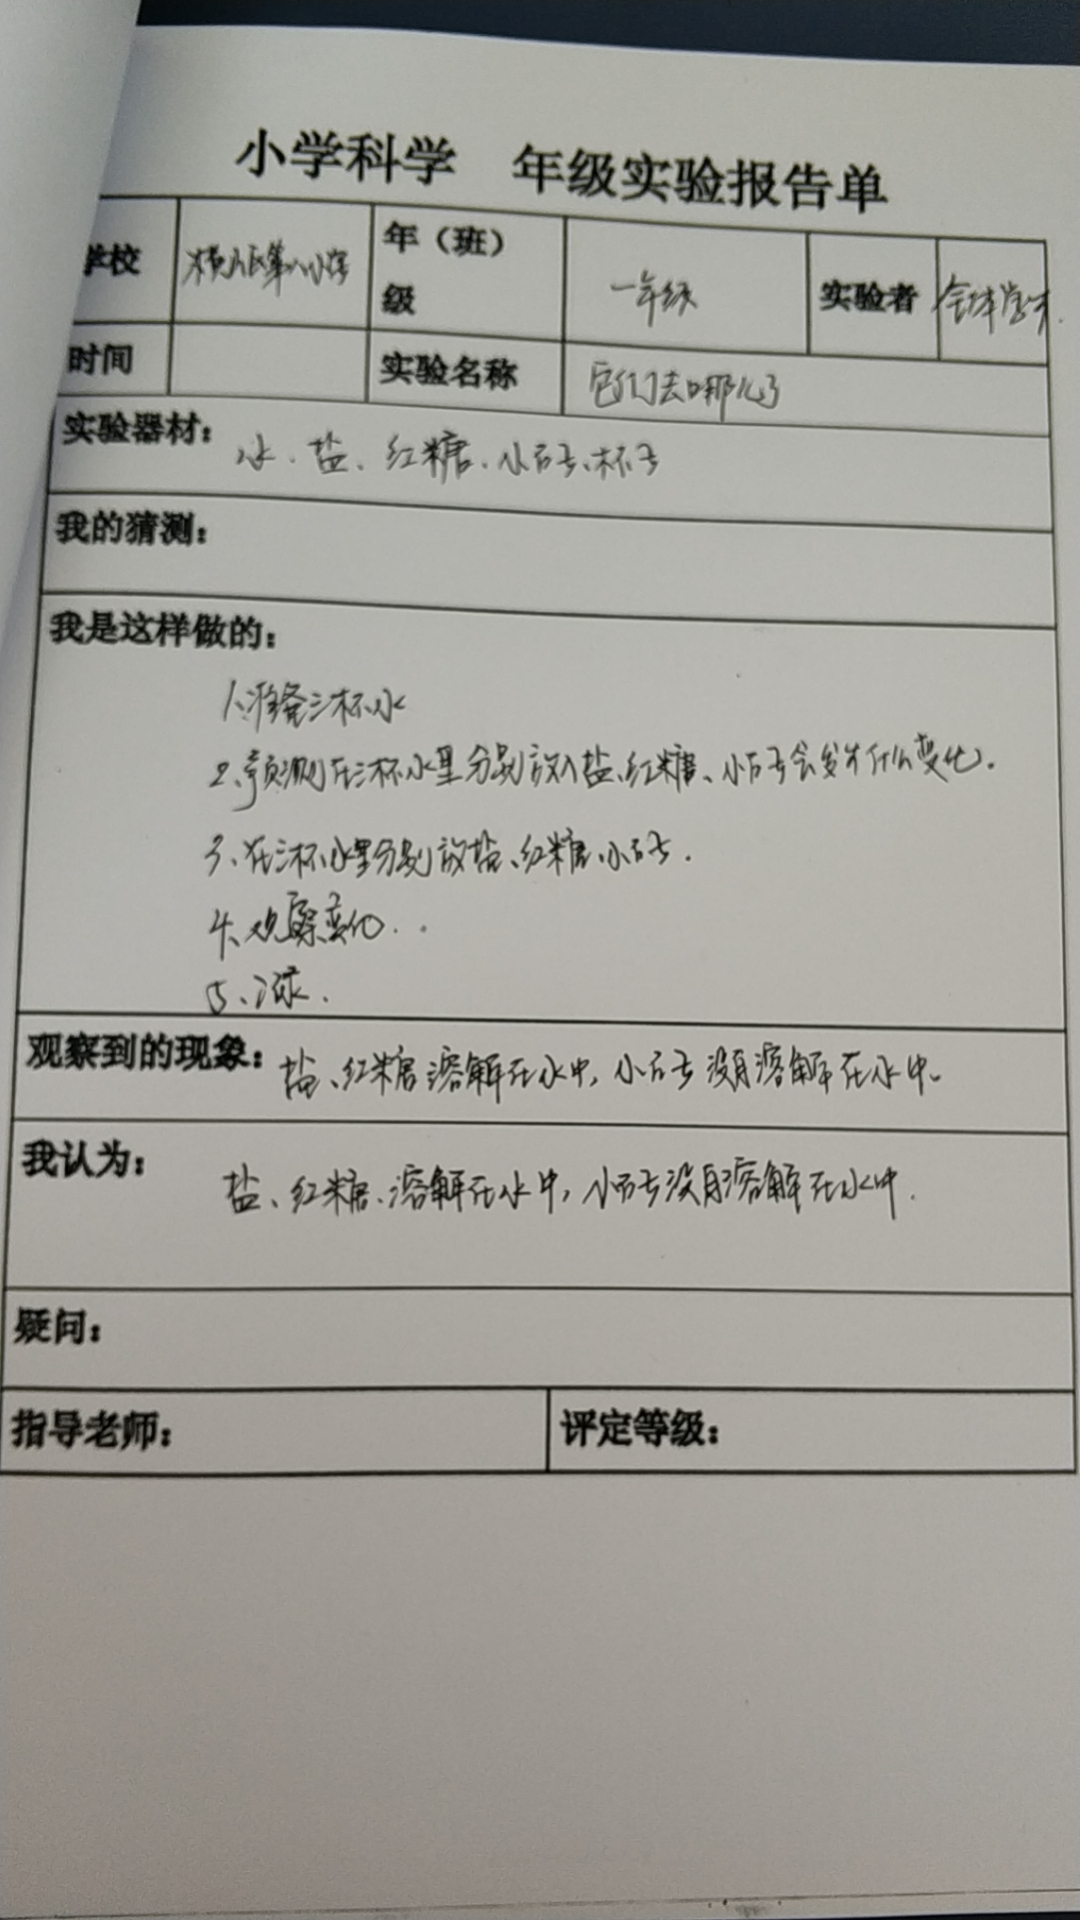 小学科学 年级实验报告单
学校 横山区第八小学 年（班）级 一年级 实验者 全体学生
时间 实验名称 它们去哪儿了
实验器材： 水、盐、红糖、小石子、杯子
我的猜测：
我是这样做的：
1、准备三杯水
2、预测在三杯水里分别放入盐、红糖、小石子会发生什么变化。
3、在三杯水里分别放盐、红糖、小石子.
4、观察变化..
5、记录.
观察到的现象： 盐、红糖溶解在水中，小石子没有溶解在水中。
我认为： 盐、红糖、溶解在水中，小石子没有溶解在水中.
疑问：
指导老师： 评定等级：